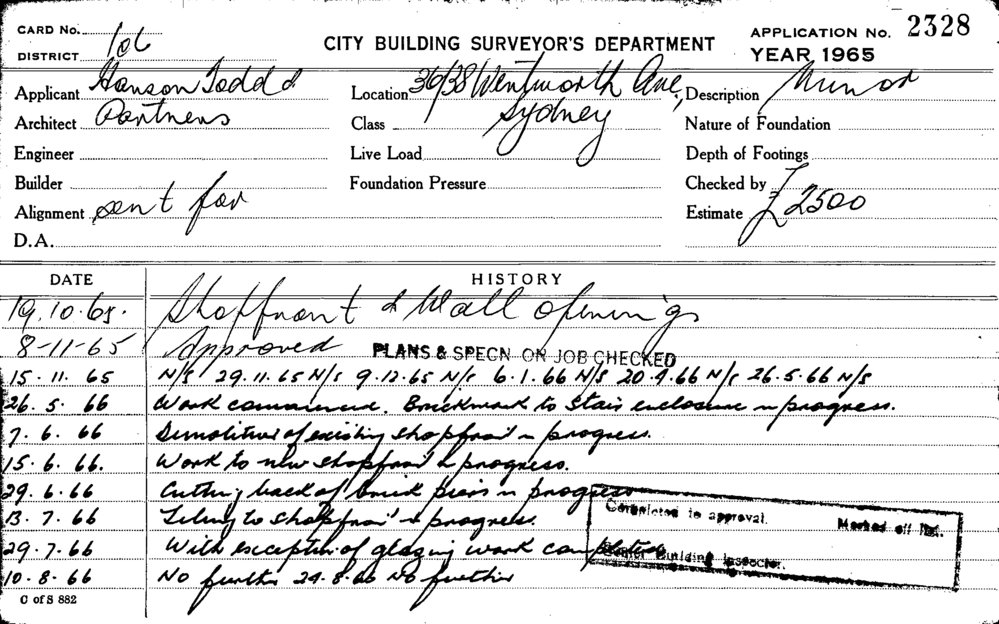 CARD No.
DISTRICT 106
CITY BUILDING SURVEYOR'S DEPARTMENT
APPLICATION No. 2328
YEAR 1965
Applicant Hanson Todd &
Architect Partners
Engineer
Builder
Alignment sent for
D.A.
Location 36/38 Wentworth Ave,
Class Sydney
Live Load
Foundation Pressure
Description Minor
Nature of Foundation
Depth of Footings
Checked by
Estimate £2500
DATE HISTORY
19.10.65. Shopfront & Wall openings
8-11-65 Approved PLANS & SPECN ON JOB CHECKED
15.11.65 N/S 29.11.65 N/S 9.12.65 N/S 6.1.66 N/S 20.4.66 N/S 26.5.66 N/S
26.5.66 Work commenced. Brickwork to Stair enclosure in progress.
7.6.66 Demolition of existing shopfront in progress.
15.6.66. Work to new shopfront in progress.
29.6.66 Cutting back of brick piers in progress
13.7.66 Tiling to shopfront in progress.
29.7.66 With exception of glazing work completed
10.8.66 No further 24.8.66 No further
Completed to approval. Marked off list.
Building Inspector.
C of S 882